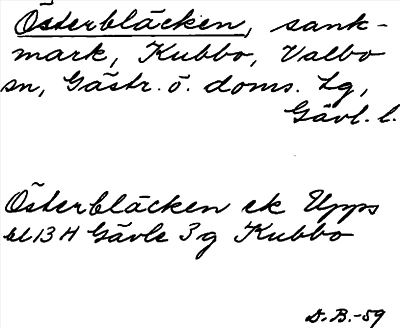 Österbläcken, sank-
mark, Kubbo, Valbo
sn, Gästr. ö. doms. lg,
Gävl. l.
Österbläcken ek Upps
bl 13 H Gävle 3g Kubbo
D. B. -59